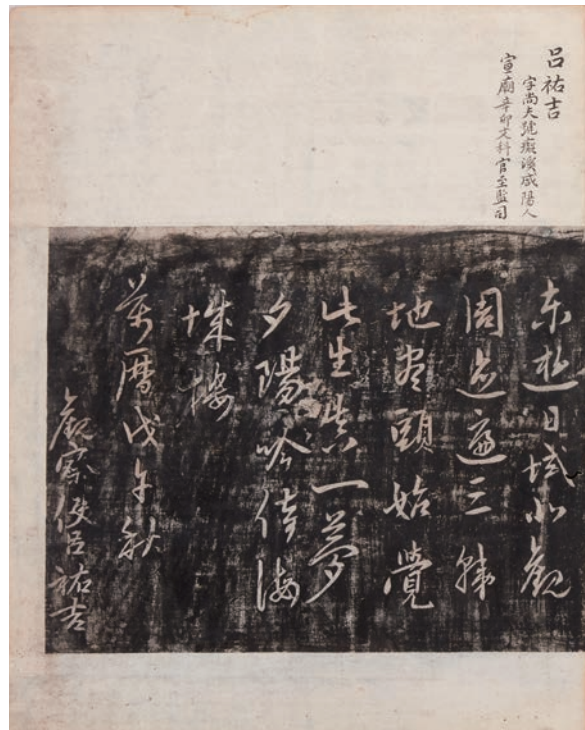 呂祐吉
字尚夫號癡溪咸陽人
宣廟辛卯文科官至監司
東日域北觀
周迹遍三韓
地盡頭始覺
此生眞一夢
夕陽吟倚海
城樓
萬曆戊午秋
觀察使呂祐吉